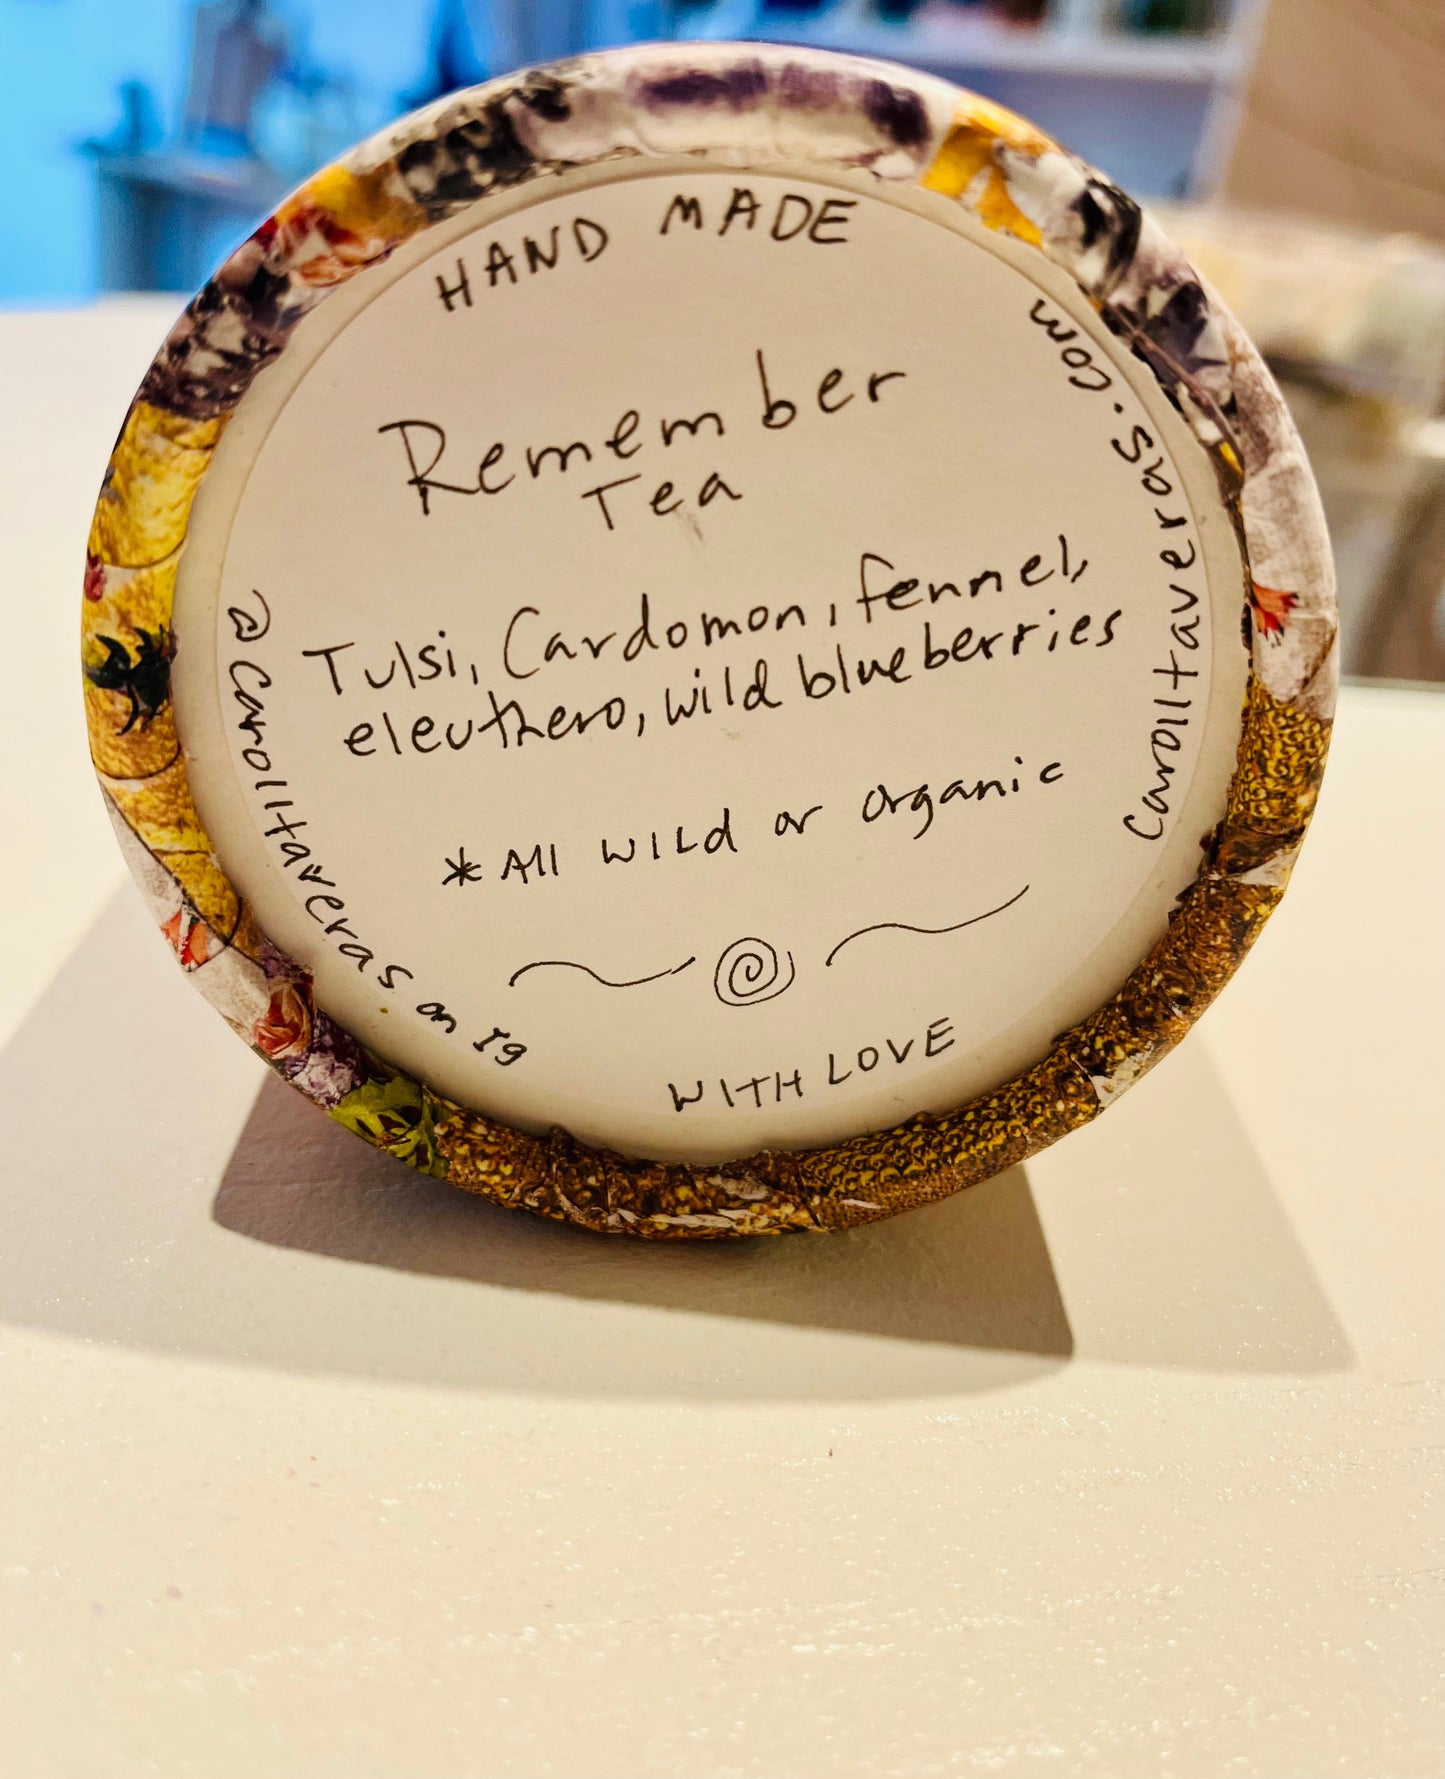 HAND MADE
Remember
Tea
Tulsi, Cardomon, fennel,
eleuthero, wild blueberries
*All wild or organic
WITH LOVE
@carolltaveras on Ig
carolltaveras.com